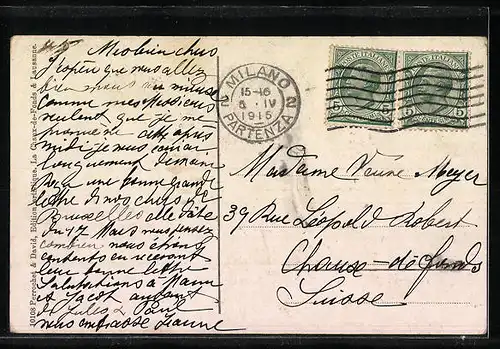 Mes bien chers
J'espère que vous allez
bien
comme mes Messieurs
veulent que je me
promène cet après
midi je vous
longuement demain
Reçu une bonne grande
lettre de nos chers de
Bruxelles elle date
du 17 Mars vous pensez
combien nous étions
contents en recevant
leur bonne lettre
Salutations à
et Jacot
de Jules & Paul
vous embrasse Jeanne
10108 Perrochet & David, Edition Artistique, La Chaux-de-Fonds & Lausanne.
MILANO
15-16
IV
1915
PARTENZA
POSTE ITALIANE
5 5
POSTE ITALIANE
5 5
Madame Meyer
39 Rue Léopold Robert
Chaux-de-fonds
Suisse